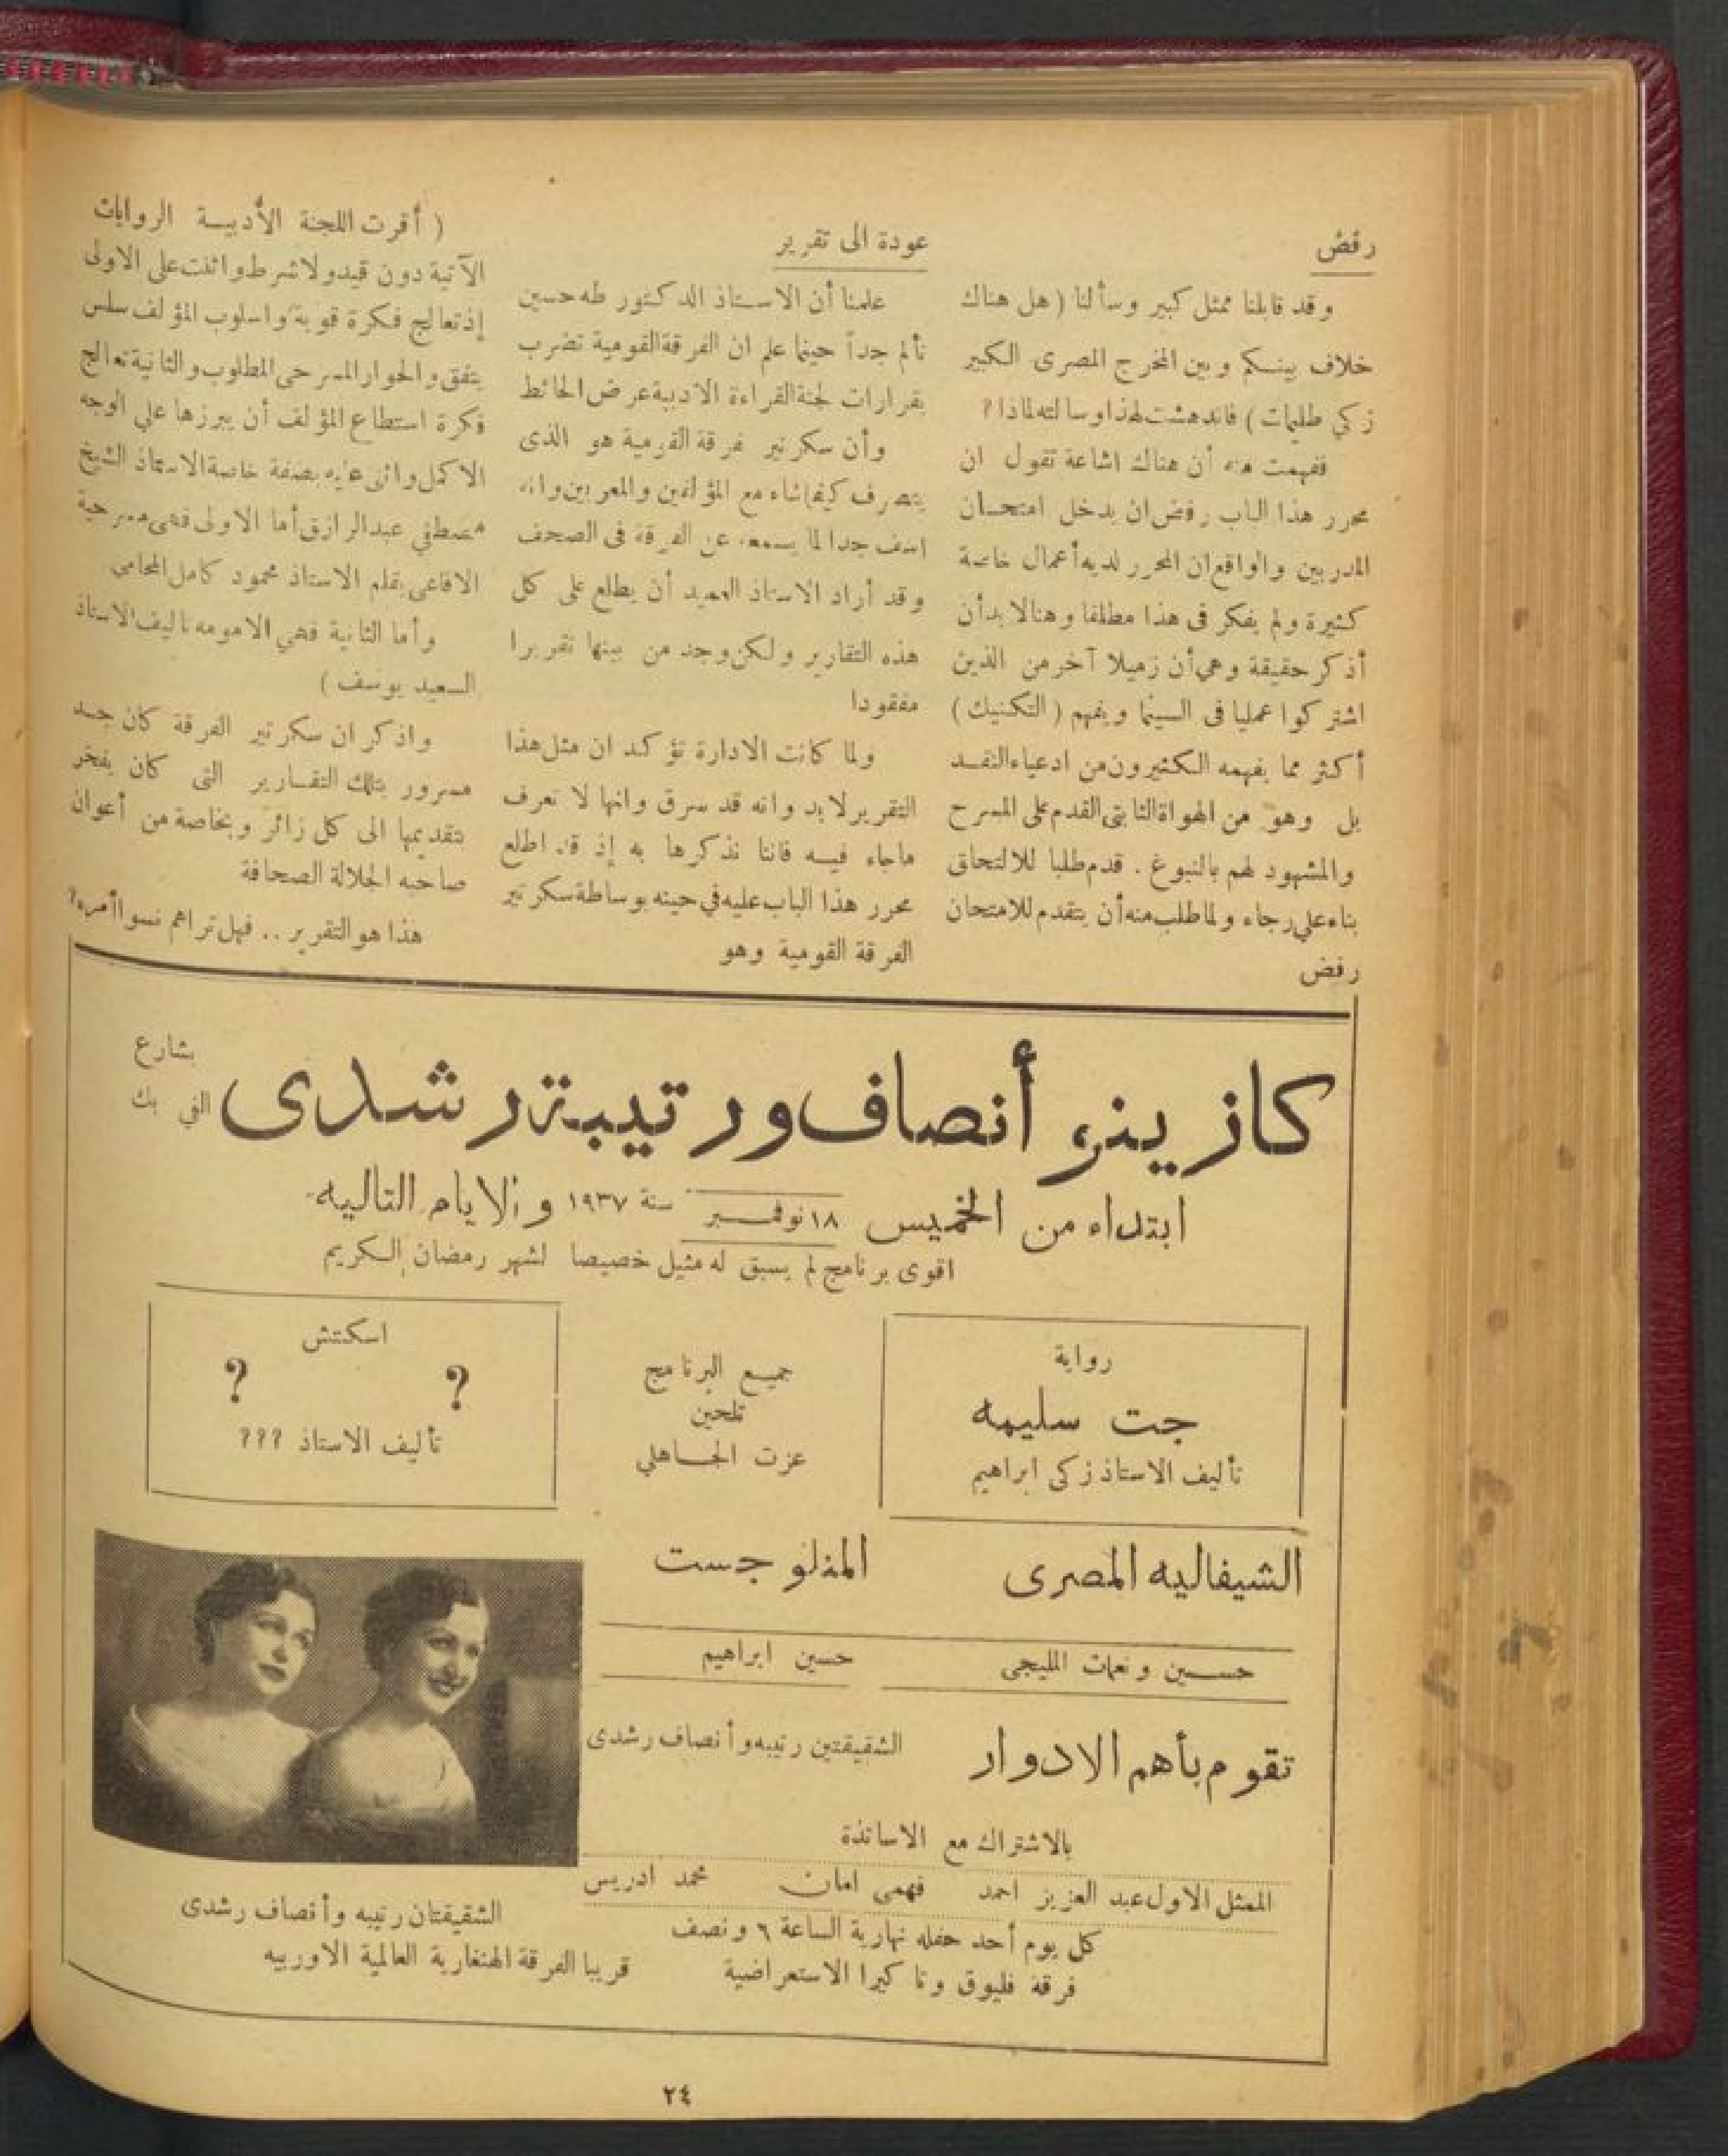 رفض
وقد قابلنا ممثل كبير وسألنا (هل هناك
خلاف بينكم وبين المخرج المصرى الكبير
زكي طليمات) فاندهشت لهذا وسالته لماذا؟
ففهمت منه أن هناك اشاعة تقول ان
محرر هذا الباب رفض ان يدخل امتحان
المدربين والواقع ان المحرر لديه أعمال خاصة
كثيرة ولم يفكر فى هذا مطلقا وهنا لا بد أن
أذكر حقيقة وهي أن زميلا آخر من الذين
اشتركوا عمليا فى السينما ويفهم (التكنيك)
أكثر مما يفهمه الكثيرون من ادعياء النقد
بل وهو من الهواة الثابتى القدم على المسرح
والمشهود لهم بالنبوغ . قدم طلبا للالتحاق
بناء على رجاء ولما طلب منه أن يتقدم للامتحان
رفض
عودة الى تقرير
علمنا أن الاستاذ الدكتور طه حسين
تألم جداً حينما علم ان الفرقة القومية تضرب
بقرارات لجنة القراءة الادبية عرض الحائط
وأن سكرتير فرقة القومية هو الذى
يتصرف كيفما شاء مع المؤلفين والمعربين وانه
اسف جدا لما يسمعه عن الفرقة فى الصحف
وقد أراد الاستاذ العميد أن يطلع على كل
هذه التقارير ولكن وجد من بينها تقريرا
مفقودا
ولما كانت الادارة تؤكد ان مثل هذا
التقرير لابد وانه قد سرق وانها لا تعرف
ماجاء فيه فاننا نذكرها به إذ قد اطلع
محرر هذا الباب عليه في حينه بوساطة سكرتير
الفرقة القومية وهو
( أقرت اللجنة الأدبية الروايات
الآتية دون قيد ولا شرط واثنت على الاولى
إذ تعالج فكرة قوية واسلوب المؤلف سلس
يتفق والحوار المسرحى المطلوب والثانية تعالج
فكرة استطاع المؤلف أن يبرزها على الوجه
الاكمل واثنى عليه بصفة خاصة الاستاذ الشيخ
مصطفي عبد الرازق أما الاولى فهى مسرحية
الافاعى بقلم الاستاذ محمود كامل المحامي
وأما الثانية فهي الامومه تاليف الاستاذ
السعيد يوسف )
واذكر ان سكرتير الفرقة كان جد
مسرور بتلك التقارير التى كان يفخر
بتقديمها الى كل زائر وبخاصة من أعوان
صاحبه الجلالة الصحافة
هذا هو التقرير .. فهل تراهم نسوا أمره؟
كازينو أنصاف ورتيبة رشدى
بشارع
الفى بك
ابتداء من الخميس ١٨ نوفمبر سنة ١٩٣٧ والايام التاليه
اقوى برنامج لم يسبق له مثيل خصيصا لشهر رمضان الكريم
رواية
جت سليمه
تأليف الاستاذ زكى ابراهيم
جميع البرنامج
تلحين
عزت الجاهلي
اسكتش
؟ ؟
تأليف الاستاذ ؟؟؟
الشيفاليه المصرى
حسين ونعمات المليجى
المنلوجست
حسين ابراهيم
تقوم بأهم الادوار الشقيقتين رتيبه وأنصاف رشدى
بالاشتراك مع الاساتذة
الممثل الاول عبد العزيز احمد فهمى امان محمد ادريس
كل يوم أحد حفله نهارية الساعة ٦ ونصف
فرقة فليوق وتاكيرا الاستعراضية
الشقيقتان رتيبه وأنصاف رشدى
قريبا الفرقة الهنغارية العالمية الاوربيه
٢٤